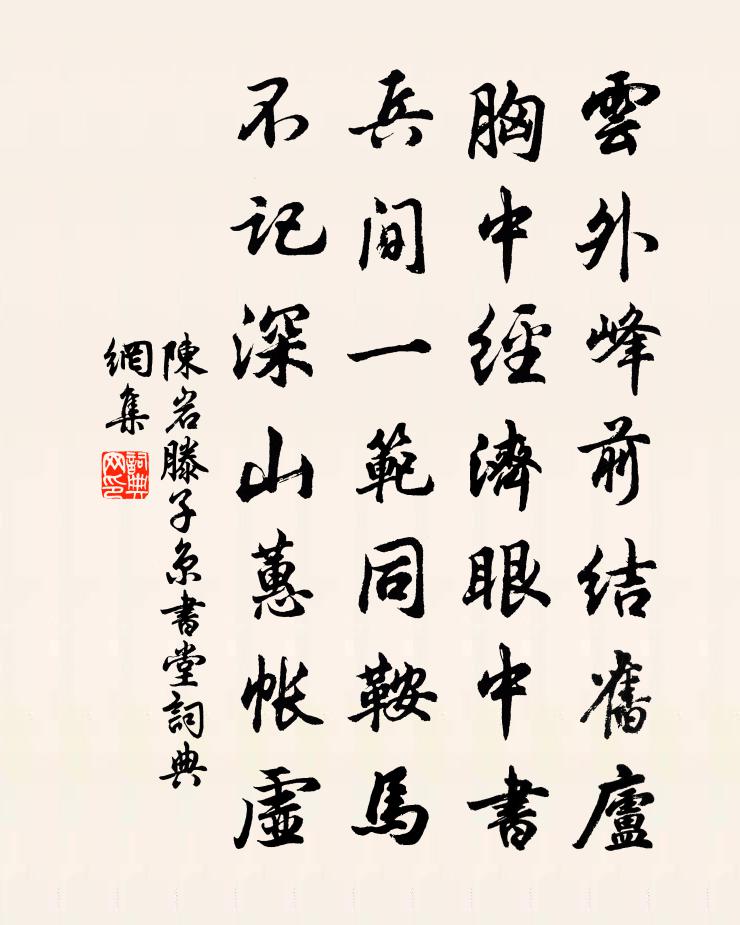 雲外峰前結舊廬
胸中經濟眼中書
兵間一範同鞍馬
不記深山蕙帳虛
陳岩滕子京書堂詞典
網集
詞典
网